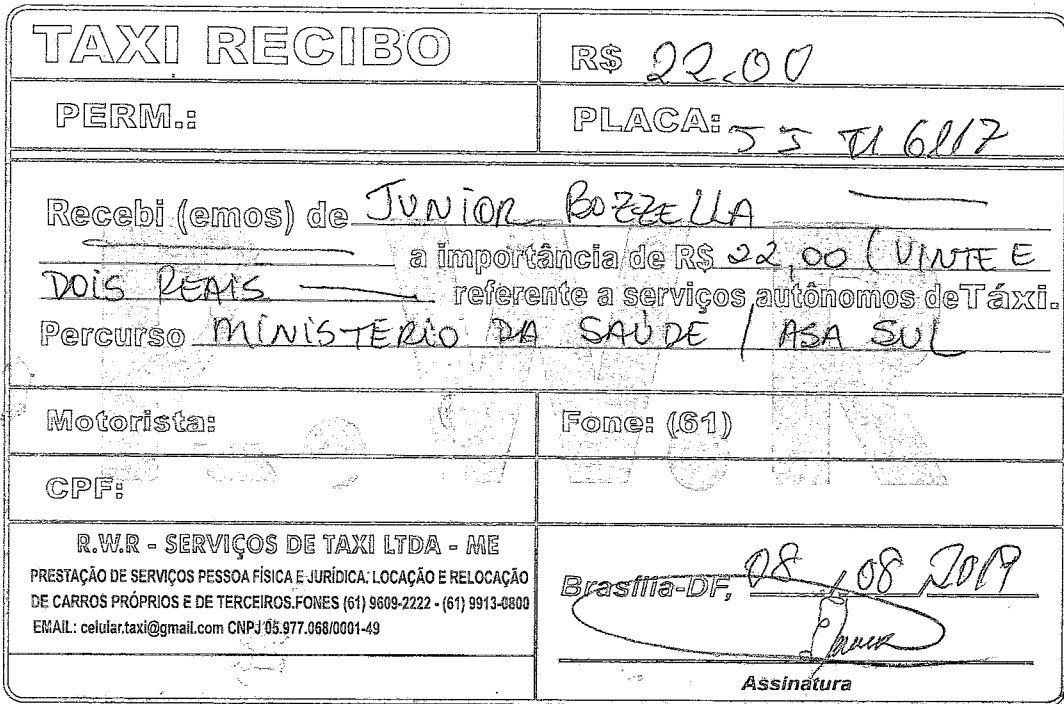 TAXI RECIBO
R$ 22.00
PERM.:
PLACA:
Recebi (emos) de JUNIOR BOZZELLA
a importância de R$ 22,00 ( VINTE E
DOIS REAIS referente a serviços autônomos de Táxi.
Percurso MINISTÉRIO DA SAÚDE / ASA SUL
Motorista:
Fone: (61)
CPF:
R.W.R - SERVIÇOS DE TAXI LTDA - ME
PRESTAÇÃO DE SERVIÇOS PESSOA FÍSICA E JURÍDICA. LOCAÇÃO E RELOCAÇÃO
DE CARROS PRÓPRIOS E DE TERCEIROS.FONES (61) 9609-2222 - (61) 9913-0800
EMAIL: celular.taxi@gmail.com CNPJ 05.977.068/0001-49
Brasília-DF, 08 / 08 / 2019
Assinatura